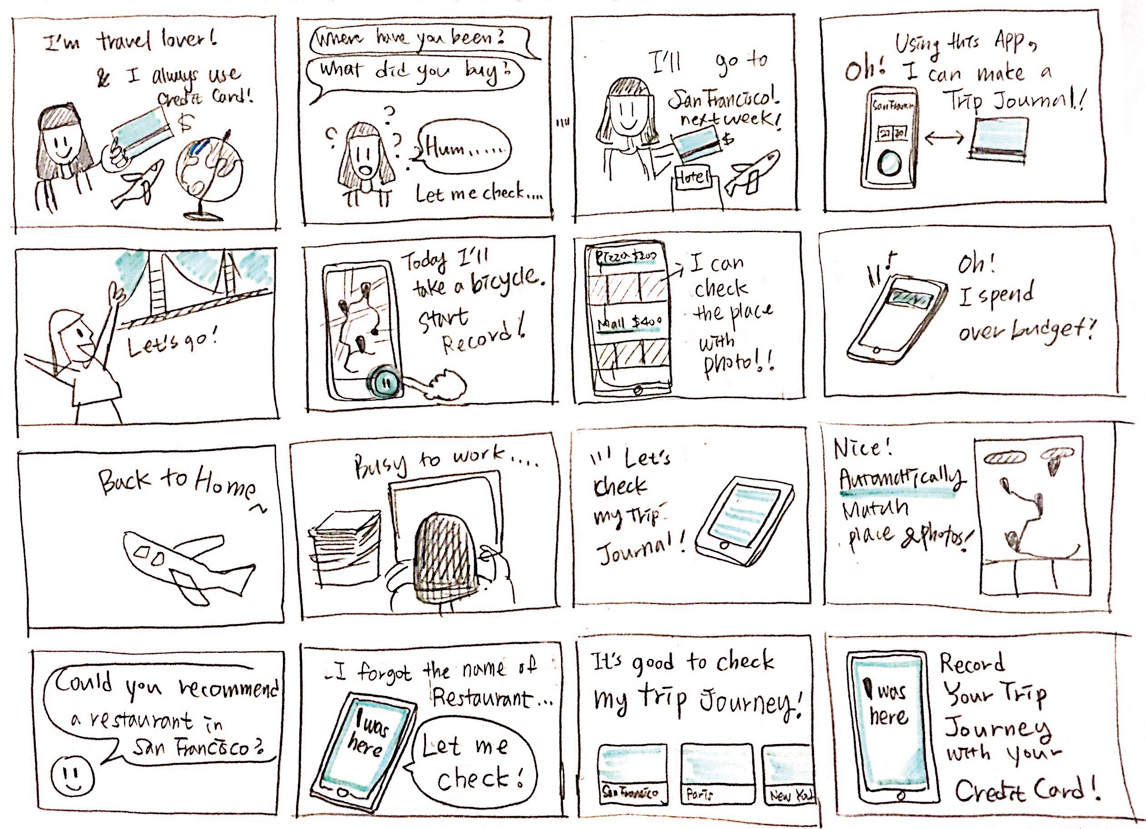 I'm travel lover!
& I always use
Credit Card!
$
Where have you been?
What did you buy?
? ? ? ?
Hum.....
Let me check....
I'll go to
San Francisco!
next week!
$
Hotel
Using this App,
Oh! I can make a
Trip Journal!
Let's go!
Today I'll
take a bicycle.
Start
Record!
Pizza $200
Mall $400
I can
check
the place
with
photo!!
Oh!
I spend
over budget?
Back to Home~
Busy to work....
Let's
check
my Trip
Journal!
Nice!
Automatically
Match
place & photos!
Could you recommend
a restaurant in
San Francisco?
..I forgot the name of
Restaurant...
I was
here
Let me
check!
It's good to check
my trip Journey!
San Francisco
Paris
I was
here
Record
Your Trip
Journey
with your
Credit Card!